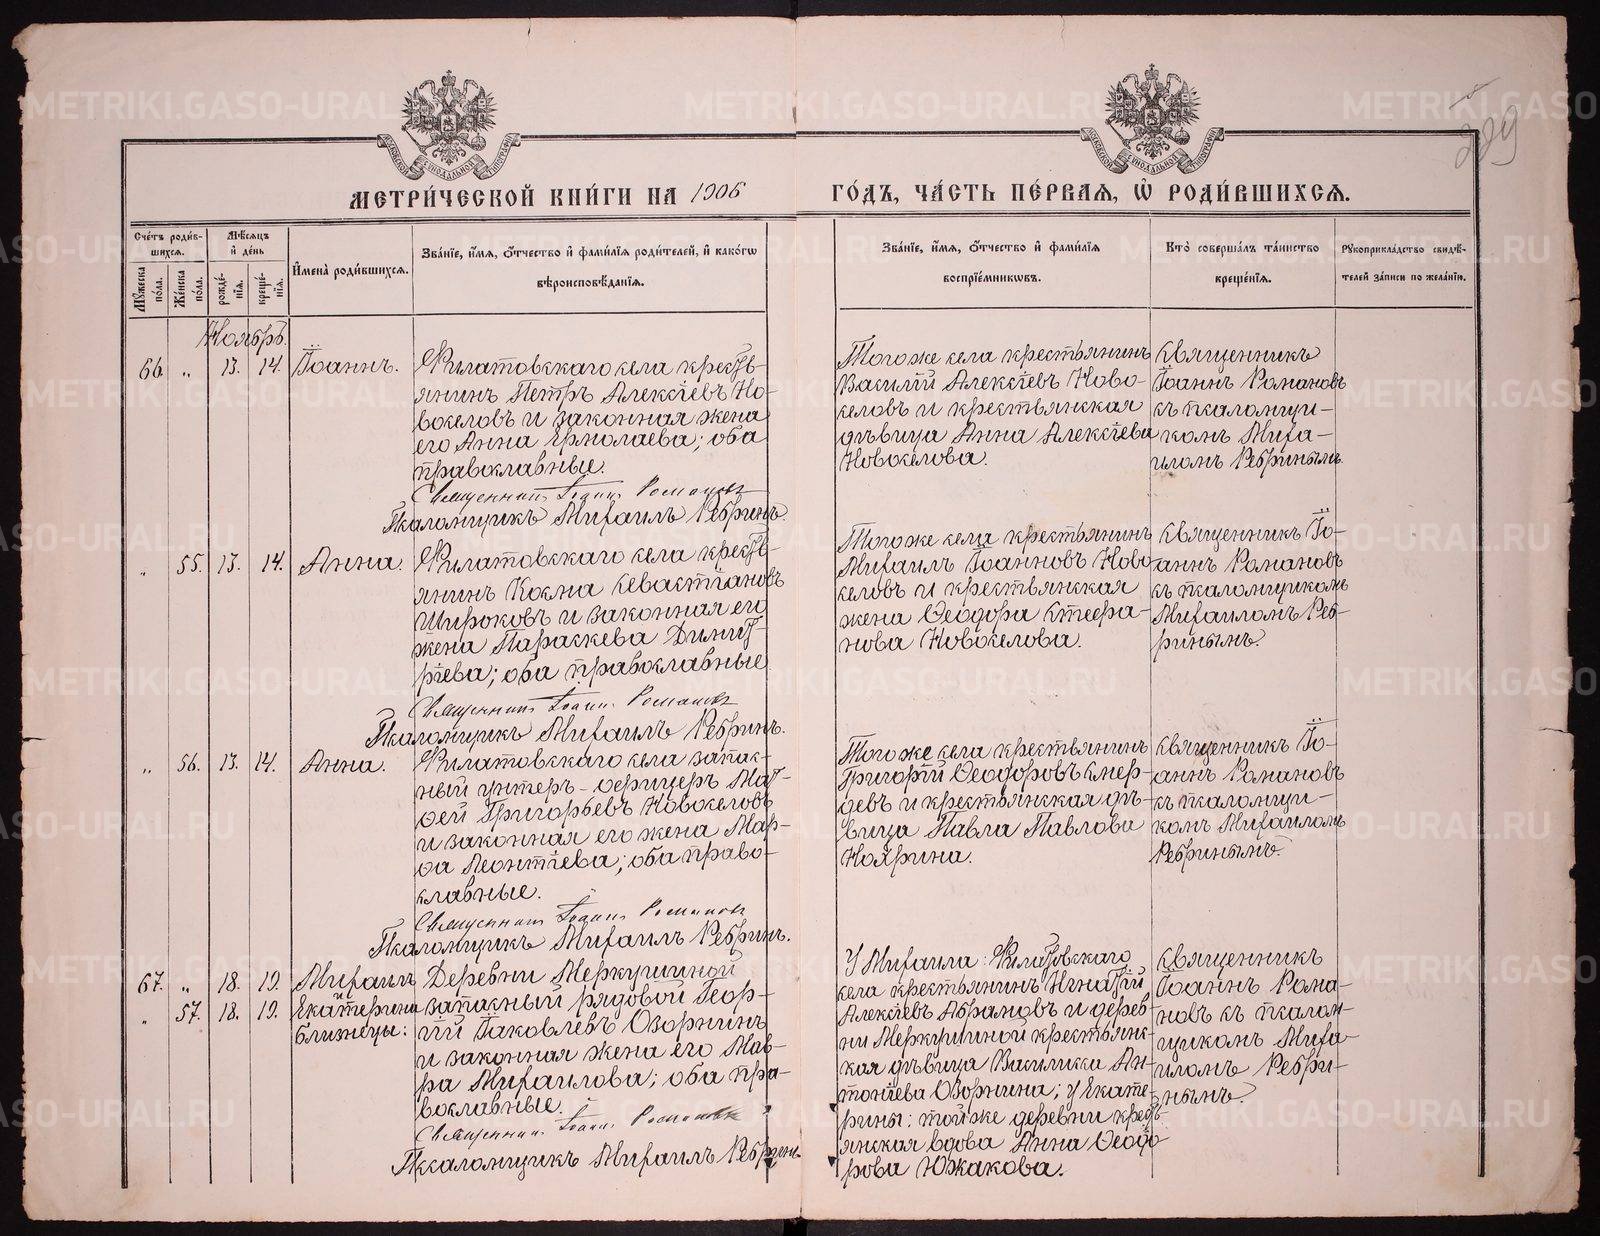 МЕТРИ́ЧЕСКОЙ КНИ́ГИ НА 1906 ГО́ДЪ, ЧА́СТЬ ПЕ́РВАЯ, Ѡ РОДИ́ВШИХСЯ.
Сче́тъ роди́вшихся.
Мꙋжеска по́ла.
Же́нска по́ла.
Мѣ́сяцъ и де́нь
рожде́нїя.
креще́нїя.
Имена̀ роди́вшихся.
Зва́нїе, и́мя, о́тчество и фами́лїя роди́телей, и како́гѡ
вѣроисповѣ́данїя.
Зва́нїе, и́мя, о́тчество и фами́лїя
воспрїе́мникѡвъ.
Кто̀ соверша́лъ та́инство
креще́нїя.
Рꙋкоприкла́дство свидѣ́-
телей за́писи по жела́нїю.
Ноябрь.
66. „ 13. 14. Іоаннъ.
Филатовскаго села кресть-
янинъ Петръ Алексіевъ Но-
воселовъ и законная жена
его Анна Ермолаева; оба
православные.
Священникъ Іоаннъ Романовъ
Псаломщикъ Михаилъ Ребринъ.
Того же села крестьянинъ
Василій Алексіевъ Ново-
селовъ и крестьянская
дѣвица Анна Алексіева
Новоселова.
Священникъ
Іоаннъ Романовъ
съ псаломщи-
комъ Миха-
иломъ Ребринымъ.
„ 55. 13. 14. Анна.
Филатовскаго села кресть-
янинъ Косма Севастіановъ
Широковъ и законная его
жена Параскева Димит-
ріева; оба православные.
Священникъ Іоаннъ Романовъ
Псаломщикъ Михаилъ Ребринъ.
Того же села крестьянинъ
Михаилъ Іоанновъ Ново-
селовъ и крестьянская
жена Ѳеодора Стефа-
нова Новоселова.
Священникъ Іо-
аннъ Романовъ
съ псаломщикомъ
Михаиломъ Реб-
ринымъ.
„ 56. 13. 14. Анна.
Филатовскаго села запас-
ный унтеръ-офицеръ Мат-
ѳей Григорьевъ Новоселовъ
и законная его жена Мар-
ѳа Леонтіева; оба право-
славные.
Священникъ Іоаннъ Романовъ
Псаломщикъ Михаилъ Ребринъ.
Того же села крестьянинъ
Григорій Ѳеодоровъ
и крестьянская дѣ-
вица Павла Павлова
Священникъ Іо-
аннъ Романовъ
съ псаломщи-
комъ Михаиломъ
Ребринымъ.
67. „ 18. 19. Михаилъ
и
„ 57. 18. 19. Екатерина
близнецы:
Деревни Меркушиной
запасный рядовой Геор-
гій Іаковлевъ Озорнинъ
и законная жена его Мав-
ра Михаилова; оба пра-
вославные.
Священникъ Іоаннъ Романовъ
Псаломщикъ Михаилъ Ребринъ
У Михаила: Филатовскаго
села крестьянинъ Игнатій
Алексіевъ Абрамовъ и дерев-
ни Меркушиной крестьянс-
кая дѣвица Василисса Ан-
тоніева Озорнина; у Екате-
рины: той же деревни кресть-
янская вдова Анна Ѳеодо-
рова Южакова.
Священникъ
Іоаннъ Рома-
новъ съ псалом-
щикомъ Миха-
иломъ Ребри-
нымъ.
METRIKI.GASO-URAL.RU